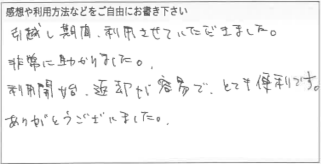 感想や利用方法などをご自由にお書き下さい
引越し期間、利用させていただきました。
非常に助かりました。
利用開始、返却が容易で、とても便利です。
ありがとうございました。